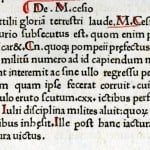 De. M. cesio
ttilij gloriã terrestri laude. M. Ces
urio subsecutus est. quom enim p
car&. Cn. quoq; pompeii prefectus
militū numero ad id capiendum m
t interemit ac sine ullo regressu pe
m quam ipse fecerat corruit. cuius
bus in eius scutum .cxx. ictibus perfo
. Iulii disciplina milites aluit: quom d
bus inhesit. Ille post hanc iactura
ura uictus.